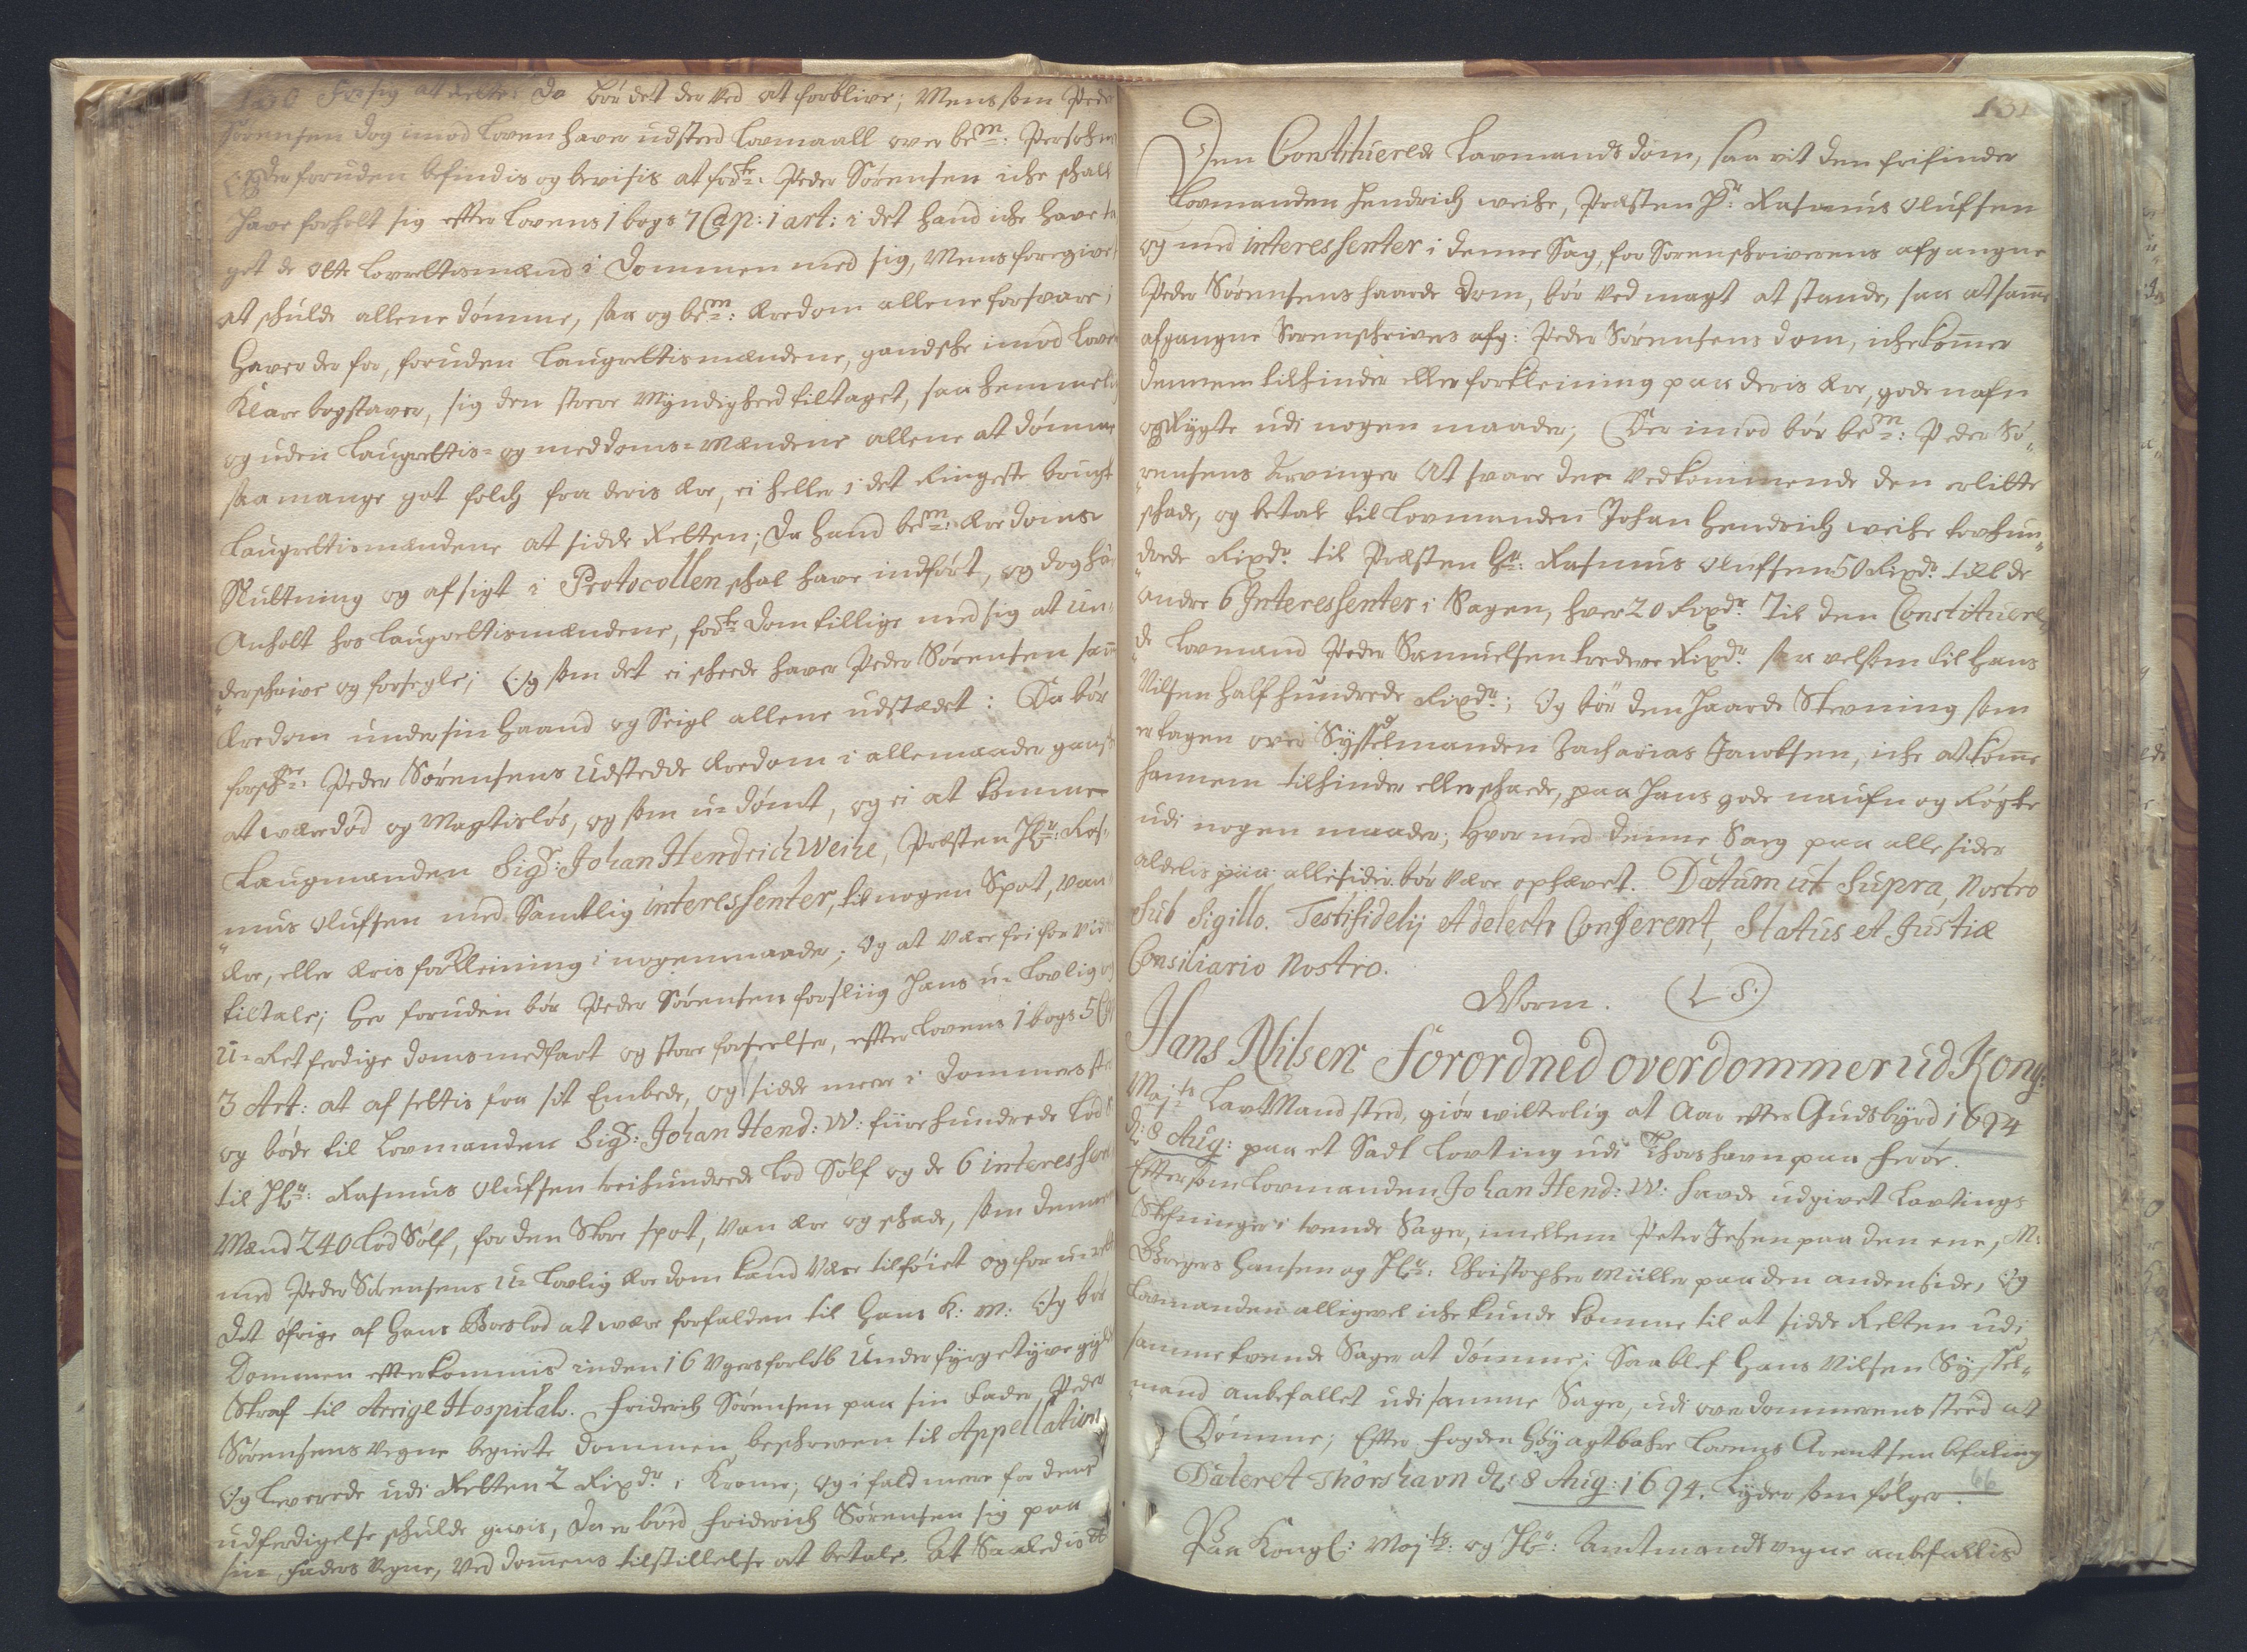 130 For sig at Rette: da bør det der ved at forblive; Mens som Peder
Sørensen dog imod Loven haver udsted Lovmaall over bem: Persohner
Og der foruden befindis og bevisis at forte: Peder Sørensen iche schall
have forholt sig efter Lovens 1 bogs 7 Cap: 1 art: i det hand iche have ta
get de otte Lovrettismænd i Dommen med sig, Mens foregiver
at schulde allene dömme, saa og bem: Æredom allene forsvare;
Haver der for, foruden Laugrettismændene, gandsche imod Loven
Klare bogstaver, sig den store Myndighed tiltaget, saa hemmelig
og uden Laugrettis- og meddoms-Mændene allene at dömme
saa mange got folch fra deris Ære, ei heller i det Ringeste brugt
Laugrettismændene at sidde Retten; Da hand bem: Ære doms
Slutning og afsigt i Protocollen schal have indfört, og dog ha
Anholt hos Laugrettismændene, forte Dom tillige med sig at Un-
derschrive og forsegle; Og som det ei scheede haver Peder Sørensen sam
Æredom under sin Haand og Seigl allene udstædet: Da bör
forschr: Peder Sørensens Udstedde Æredom i alle maader gansche
at være död og Magtislös, og som u-dömt, og ei at komme
Laugmanden Sigr: Johan Hendrich Weihe, Præsten Hr: Ras-
mus Olufsen med Samtlig interessenter, til nogen Spot, Van
Ære, eller Æris forkleining i nogenmaader; Og at være fri for vid
tiltale; Her foruden bör Peder Sørensen for sliig Hans u-Lovlig og
U-Retferdige domsmedfart og store forseelser, efter Lovens 1 bogs 5 Cap
3 Art: at af settis fra sit Embede, og sidde mere i Dommers sted
og böde til Lovmanden Sigr: Johan Hend: W: fiirehundrede Lod S
til Hr: Rasmus Olufsen treihundrede Lod Sölf og de 6 interessent
Mænd 240 Lod Sölf, for den Store spot, Van Ære og schade, som dennem
med Peder Sørensens u-Lovlig Æredom kand Være tilföiet og for u-ret
Det öfrige af Hans Boeslod at være forfalden til Hans K: M: Og bör
Dommen efterkommis inden 16 Ugers forlöb Under fyrgetyve
Straf til Arrige Hospital. Friderich Sørensen paa sin Fader Peder
Sørensens Vegne begierte Dommen beschreven til Appellation
Og leverede udi Retten 2 Rixdr i Krone; Og i fald mere for dens
udferdigelse schulde givis, da er böd Friderich Sørensen sig paa
sin Faders Vegne, Ved domens tilstillelse at betale. At Saaledis
131
Den Constituerede Lavmands dom, saa vit den frifinder
Lovmanden Hendrich weihe, Præsten Hr: Rasmus Olufsen
og med interessenter i denne Sag, for Sorenschriverens afgangne
Peder Sørensens haarde Dom, bör Ved magt at stande, saa at same
afgangne Sorenschrivers afg: Peder Sørensens dom, iche komer
dennem til hinder eller forkleining paa deris Ære, gode nafn
og Rygte udi nogen maader; Der imod bör bem: Peder Sö-
rensens Arvinger At svare der Vedkommende den erlitte
schade, og betale til Lovmanden Johan Hendrich weihe tovhun-
drede Rixdr. til Præsten Hr: Rasmus Olufsen 50 Rixdr. till de
andre 6 Interessenter i Sagen, hver 20 Rixdr. Til den Constituere-
de Lovmand Peder Samuelsen tredeve Rixdr. saa velsom til Hans
Nilsen half hundrede Rixdr:; Og bör den Haarde Stevning som
er tagen over Sysselmanden Zacharias Jacobsen, iche at kome
hannem til hinder eller schade, paa Hans gode naufn og Rögte
udi nogen maader; hvor med denne Sag paa alle sider
aldelis paa allesider bör være ophævet. Datum ut Supra, Nostro
Sub Sigillo. Testi fidelij et delecti Conferent, Status et Justiæ
Consiliario Nostro.
Worm. (L: S:)
Hans Nilsen Forordned overdommer ud Kong:
Majts LavMand sted, giör vitterlig at Aar efter Guds byrd 1694
d: 8 Aug: paa et Sadt Lovting udi Thorshavn paa Ferøe.
Eftersom Lovmanden Johan Hend: W: havde udgivet Lavtings
Stefninger i tvende Sager, imellem Peter Jesen paa den ene, M:
Gregers Hansen og Hr: Christopher Müller paa den anden side, Og
Lovmanden alligevel iche kunde komme til at sidde Retten udi
samme tvende Sager at dömme; Saa blef Hans Nilsen Syssel-
mand anbefallet udi samme Sager, udi over dommerens sted at
Dömme; Efter Fogden Höyagtbahre Lorens Arentsen befaling
Dateret Thorshavn d: 8 Aug: 1694. Lyder som fölger.
66
Paa Kongl: Majts: og Hr: Amtmands vegne anbefallis